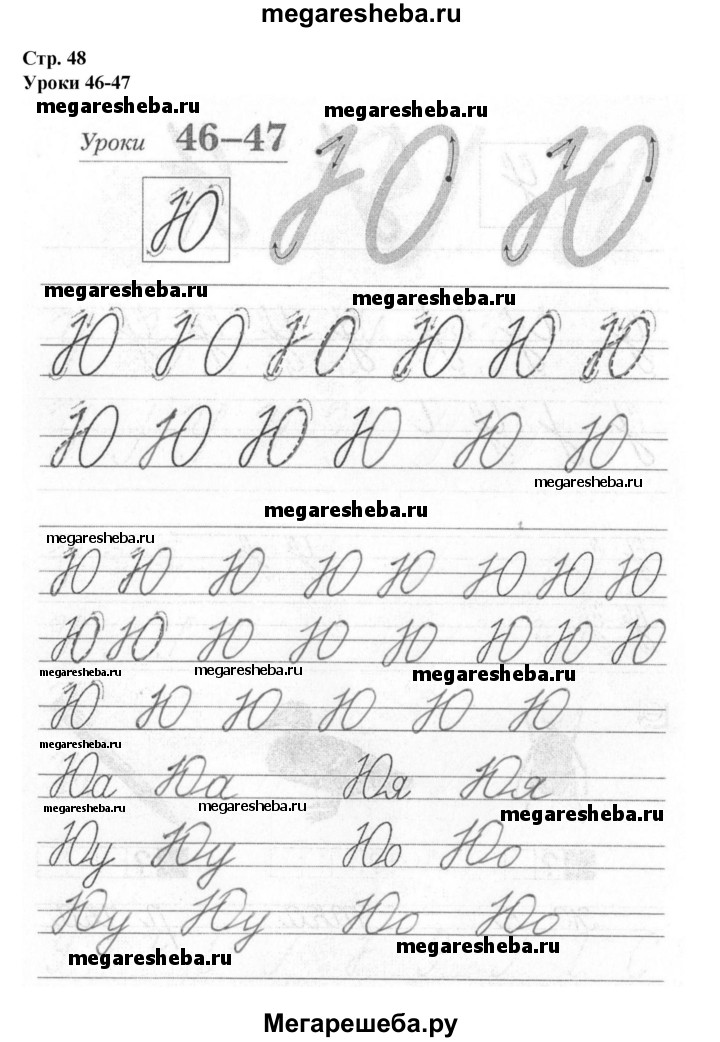 megaresheba.ru
Стр. 48
Уроки 46-47
megaresheba.ru megaresheba.ru
Уроки 46–47 Ю Ю
Ю
megaresheba.ru megaresheba.ru
Ю Ю Ю Ю Ю Ю
Ю Ю Ю Ю Ю Ю
megaresheba.ru
megaresheba.ru
megaresheba.ru
Ю Ю Ю Ю Ю Ю Ю Ю
Ю Ю Ю Ю Ю Ю Ю Ю
megaresheba.ru megaresheba.ru megaresheba.ru
Ю Ю Ю Ю Ю Ю
megaresheba.ru
Юа Юа Юя Юя
megaresheba.ru megaresheba.ru megaresheba.ru
Юу Юу Юо Юо
Юу Юу Юо Юо
megaresheba.ru megaresheba.ru
Мегарешеба.ру